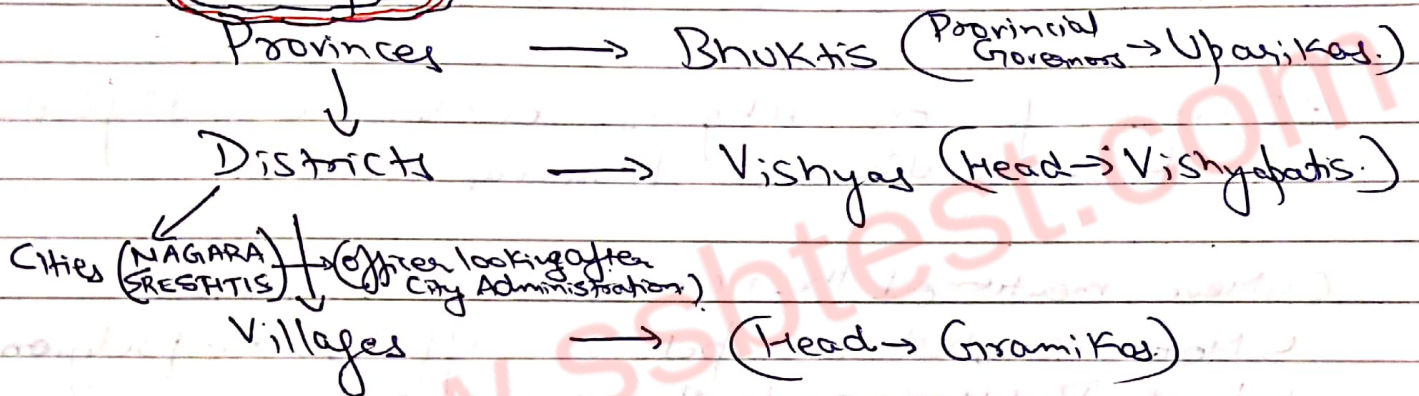 Provinces → Bhuktis (Provincial Governors → Uparikas.)
↓
Districts → Vishyas (Head → Vishyapatis.)
Cities (NAGARA SRESHTIS) → (Officer looking after City Administration)
Villages → (Head → Gramikas.)
w.ssbtest.com